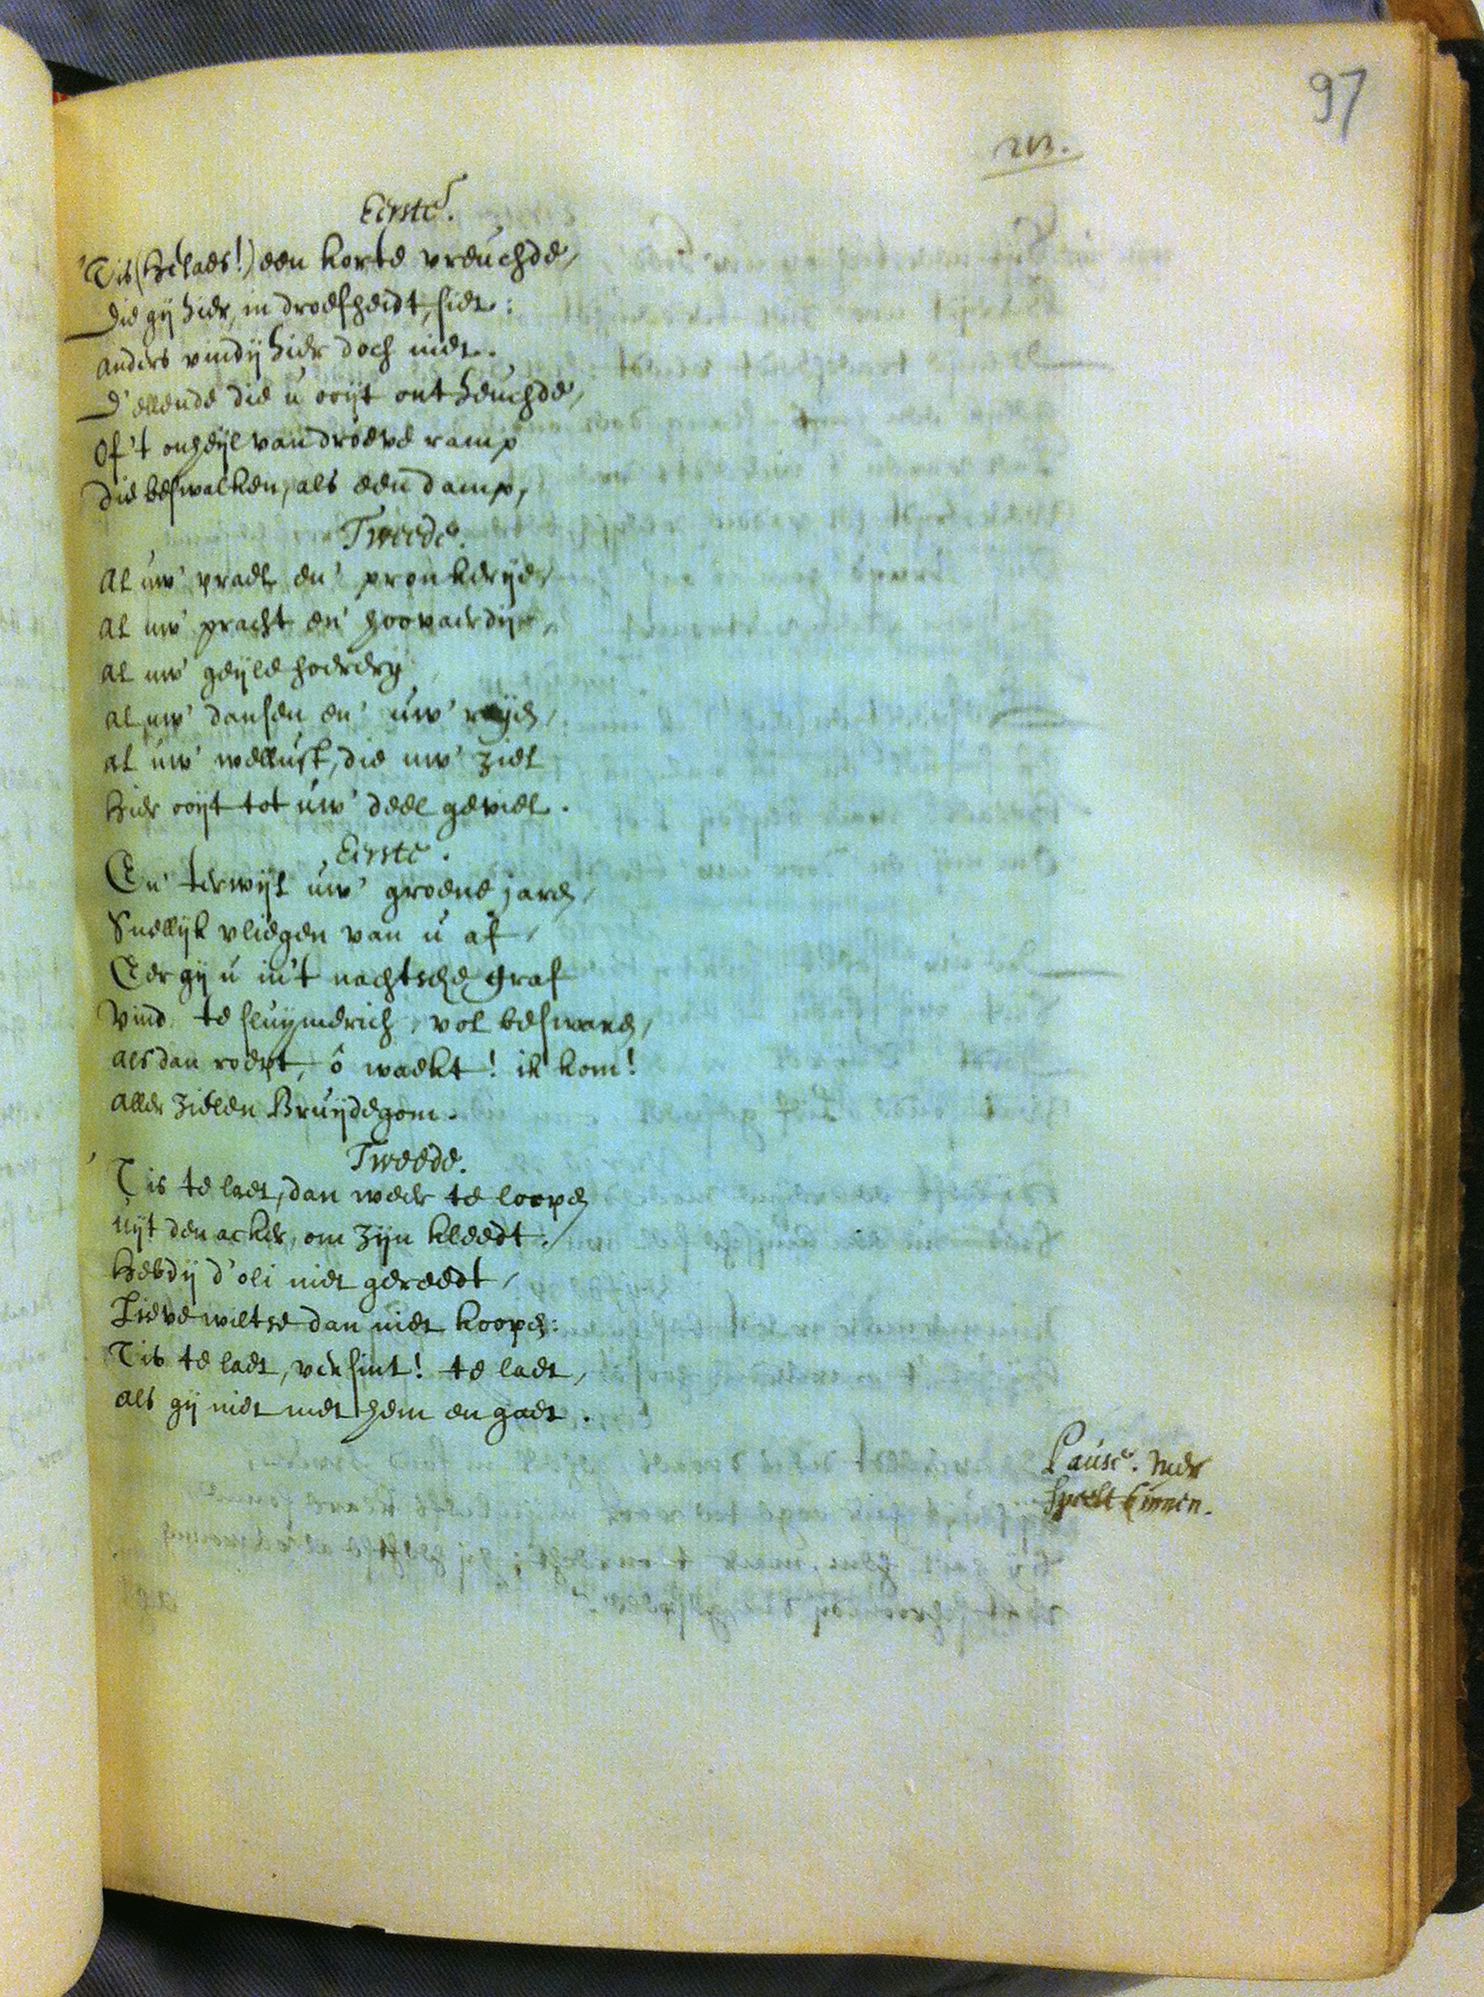 97
213.
Eerste.
'Tis (helaes!) een korte vreuchde,
Die gij hier, in droefheidt, siet:
anders vindij hier doch niet.
D'ellende die u ooijt ontheuchde,
Of 't onheijl van droeve ramp
Die beswalken, als een damp,
Tweede.
Al uw' prael en' pronkerije,
Al uw' pracht en' hoovaerdije,
Al uw' geijle hoerdrij
al uw' dansen en' uw' reijen,
al uw' wellust, die uw' ziel
Hier ooijt tot uw' deel geviel.
Eerste.
En' terwijl uw' groene jaren,
Snellijk vliegen van u af,
Eer gij u in't nachtsche graf
Vind te sluijmerich, vol beswaren,
als dan roept, ô waekt! ik kom!
aller zielen Bruijdegom.
Tweede.
'Tis te laet, dan weer te loopen
uijt den acker, om zijn kleedt:
Hebdij d'oli niet gereedt,
Lieve wiltse dan niet koopen:
Tis te laet, versint! te laet,
als gij niet met hem en gaet.
Pause. Men
speelt binnen.